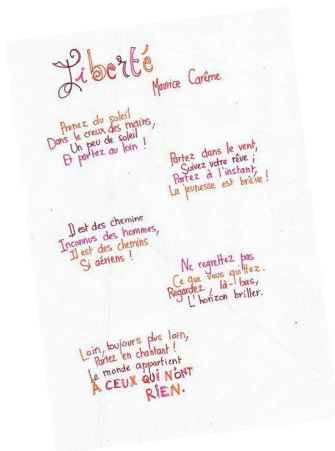 Liberté
Maurice Carême
Prenez du soleil
Dans le creux des mains,
Un peu de soleil
Et partez au loin !
Partez dans le vent,
Suivez votre rêve ;
Partez à l'instant,
La jeunesse est brève !
Il est des chemins
Inconnus des hommes,
Il est des chemins
Si aériens !
Ne regrettez pas
Ce que vous quittez.
Regardez, là-bas,
L'horizon briller.
Loin, toujours plus loin,
Partez en chantant !
Le monde appartient
À CEUX QUI N'ONT
RIEN.